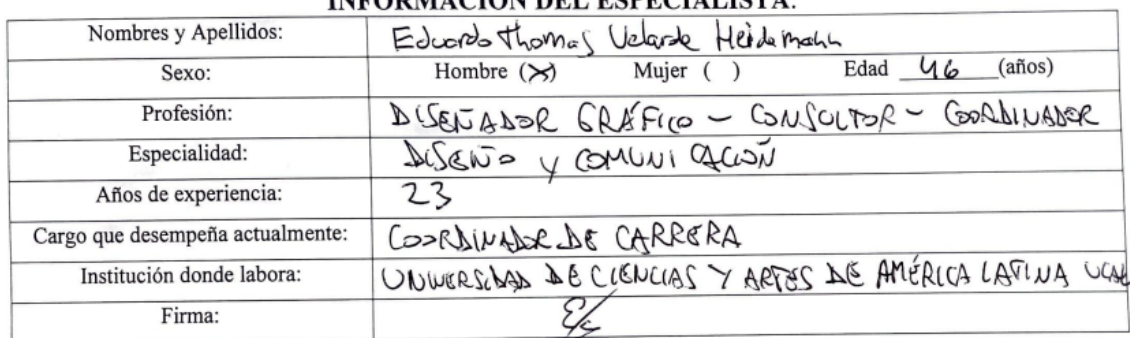 INFORMACIÓN DEL ESPECIALISTA.
Nombres y Apellidos: Eduardo Thomas Velarde Heidemann
Sexo: Hombre (X) Mujer ( ) Edad 46 (años)
Profesión: DISEÑADOR GRÁFICO - CONSULTOR - COORDINADOR
Especialidad: DISEÑO Y COMUNICACIÓN
Años de experiencia: 23
Cargo que desempeña actualmente: COORDINADOR DE CARRERA
Institución donde labora: UNIVERSIDAD DE CIENCIAS Y ARTES DE AMÉRICA LATINA UCAL
Firma: